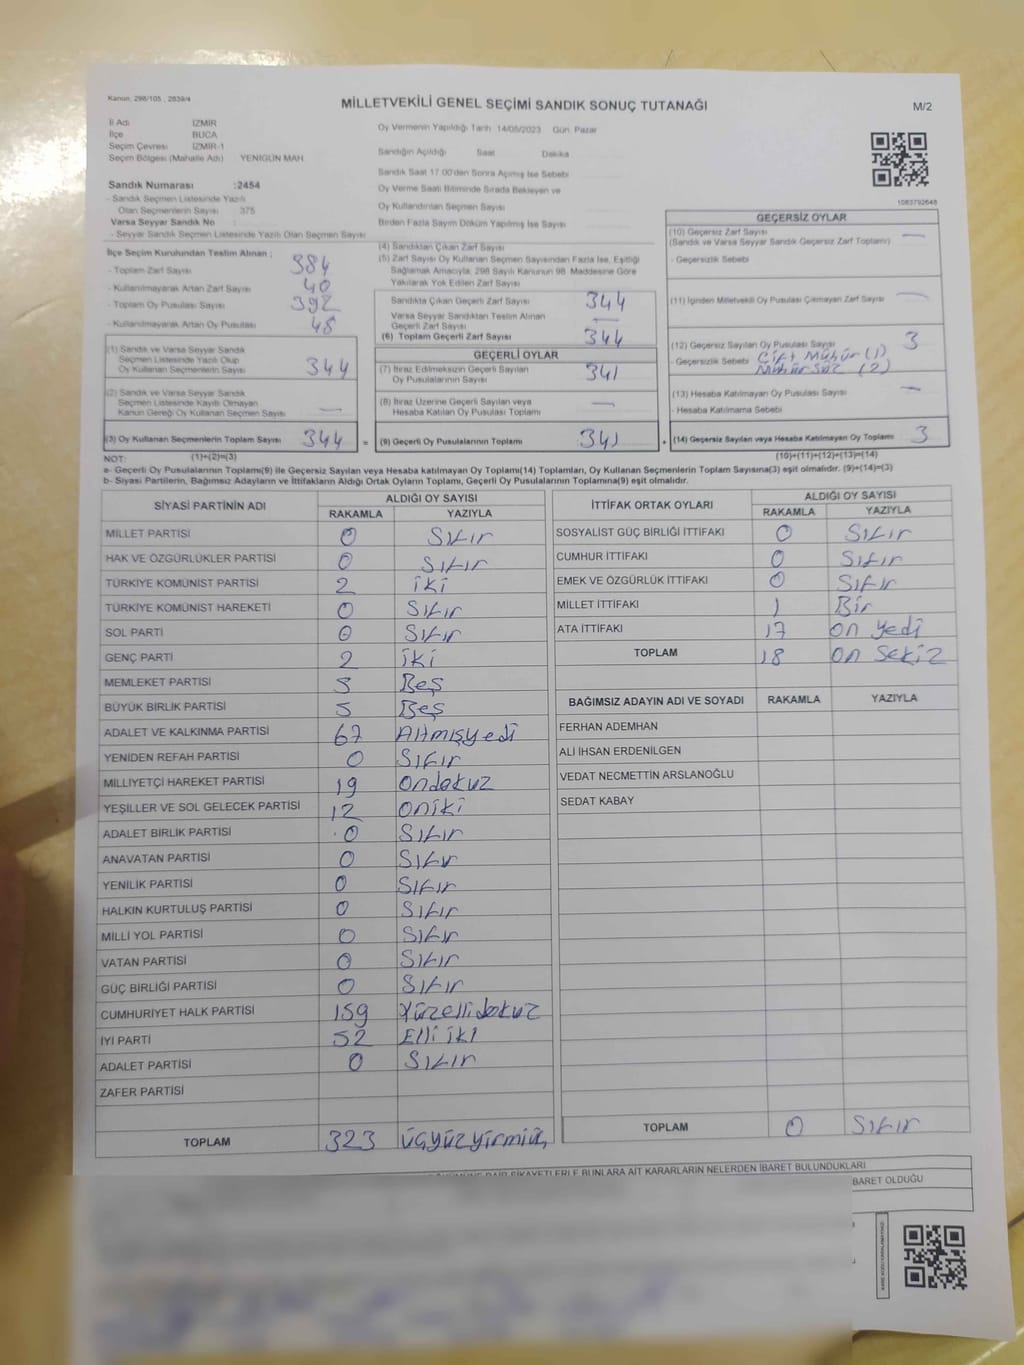 Kanun, 298/105 , 2839/4
MİLLETVEKİLİ GENEL SEÇİMİ SANDIK SONUÇ TUTANAĞI
M/2
İl Adı İZMİR
İlçe BUCA
Seçim Çevresi İZMİR-1
Seçim Bölgesi (Mahalle Adı) YENİGÜN MAH.
Sandık Numarası :2454
- Sandık Seçmen Listesinde Yazılı
Olan Seçmenlerin Sayısı 375
Varsa Seyyar Sandık No
- Seyyar Sandık Seçmen Listesinde Yazılı Olan Seçmen Sayısı
Oy Vermenin Yapıldığı Tarih 14/05/2023 Gün Pazar
Sandığın Açıldığı Saat Dakika
Sandık Saat 17.00'den Sonra Açımış İse Sebebi
Oy Verme Saati Bitiminde Sırada Bekleyen ve
Oy Kullandırılan Seçmen Sayısı
Birden Fazla Sayım Döküm Yapılmış İse Sayısı
1083792648
İlçe Seçim Kurulundan Teslim Alınan ;
- Toplam Zarf Sayısı 384
- Kullanılmayarak Artan Zarf Sayısı 40
- Toplam Oy Pusulası Sayısı 392
- Kullanılmayarak Artan Oy Pusulası 48
(1) Sandık ve Varsa Seyyar Sandık
Seçmen Listesinde Yazılı Olup
Oy Kullanan Seçmenlerin Sayısı 344
(2) Sandık ve Varsa Seyyar Sandık
Seçmen Listesinde Kayıtlı Olmayan
Kanun Gereği Oy Kullanan Seçmen Sayısı —
(3) Oy Kullanan Seçmenlerin Toplam Sayısı 344 =
(4) Sandıktan Çıkan Zarf Sayısı
(5) Zarf Sayısı Oy Kullanan Seçmen Sayısından Fazla İse, Eşitliği
Sağlamak Amacıyla, 298 Sayılı Kanunun 98. Maddesine Göre
Yakılarak Yok Edilen Zarf Sayısı
Sandıkta Çıkan Geçerli Zarf Sayısı 344
Varsa Seyyar Sandıktan Teslim Alınan
Geçerli Zarf Sayısı —
(6) Toplam Geçerli Zarf Sayısı 344
GEÇERLİ OYLAR
(7) İtiraz Edilmeksizin Geçerli Sayılan
Oy Pusulalarının Sayısı 341
(8) İtiraz Üzerine Geçerli Sayılan veya
Hesaba Katılan Oy Pusulası Toplamı —
(9) Geçerli Oy Pusulalarının Toplamı 341 +
GEÇERSİZ OYLAR
(10) Geçersiz Zarf Sayısı —
(Sandık ve Varsa Seyyar Sandık Geçersiz Zarf Toplamı)
- Geçersizlik Sebebi
(11) İçinden Milletvekili Oy Pusulası Çıkmayan Zarf Sayısı —
(12) Geçersiz Sayılan Oy Pusulası Sayısı 3
- Geçersizlik Sebebi Çift Mühür (1)
Mühürsüz (2)
(13) Hesaba Katılmayan Oy Pusulası Sayısı —
- Hesaba Katılmama Sebebi
(14) Geçersiz Sayılan veya Hesaba Katılmayan Oy Toplamı 3
NOT: (1)+(2)=(3) (10)+(11)+(12)+(13)=(14)
a- Geçerli Oy Pusulalarının Toplamı(9) ile Geçersiz Sayılan veya Hesaba katılmayan Oy Toplamı(14) Toplamları, Oy Kullanan Seçmenlerin Toplam Sayısına(3) eşit olmalıdır. (9)+(14)=(3)
b- Siyasi Partilerin, Bağımsız Adayların ve İttifakların Aldığı Ortak Oyların Toplamı, Geçerli Oy Pusulalarının Toplamına(9) eşit olmalıdır.
SİYASİ PARTİNİN ADI ALDIĞI OY SAYISI
RAKAMLA YAZIYLA
MİLLET PARTİSİ 0 Sıfır
HAK VE ÖZGÜRLÜKLER PARTİSİ 0 Sıfır
TÜRKİYE KOMÜNİST PARTİSİ 2 iki
TÜRKİYE KOMÜNİST HAREKETİ 0 Sıfır
SOL PARTİ 0 Sıfır
GENÇ PARTİ 2 iki
MEMLEKET PARTİSİ 5 Beş
BÜYÜK BİRLİK PARTİSİ 5 Beş
ADALET VE KALKINMA PARTİSİ 67 Altmışyedi
YENİDEN REFAH PARTİSİ 0 Sıfır
MİLLİYETÇİ HAREKET PARTİSİ 19 Ondokuz
YEŞİLLER VE SOL GELECEK PARTİSİ 12 Oniki
ADALET BİRLİK PARTİSİ 0 Sıfır
ANAVATAN PARTİSİ 0 Sıfır
YENİLİK PARTİSİ 0 Sıfır
HALKIN KURTULUŞ PARTİSİ 0 Sıfır
MİLLİ YOL PARTİSİ 0 Sıfır
VATAN PARTİSİ 0 Sıfır
GÜÇ BİRLİĞİ PARTİSİ 0 Sıfır
CUMHURİYET HALK PARTİSİ 159 Yüzellidokuz
İYİ PARTİ 52 Elli iki
ADALET PARTİSİ 0 Sıfır
ZAFER PARTİSİ
TOPLAM 323 üçyüzyirmiüç
İTTİFAK ORTAK OYLARI ALDIĞI OY SAYISI
RAKAMLA YAZIYLA
SOSYALİST GÜÇ BİRLİĞİ İTTİFAKI 0 Sıfır
CUMHUR İTTİFAKI 0 Sıfır
EMEK VE ÖZGÜRLÜK İTTİFAKI 0 Sıfır
MİLLET İTTİFAKI 1 Bir
ATA İTTİFAKI 17 on yedi
TOPLAM 18 on sekiz
BAĞIMSIZ ADAYIN ADI VE SOYADI RAKAMLA YAZIYLA
FERHAN ADEMHAN
ALİ İHSAN ERDENİLGEN
VEDAT NECMETTİN ARSLANOĞLU
SEDAT KABAY
TOPLAM 0 Sıfır
DAİR ŞİKAYETLERLE BUNLARA AİT KARARLARIN NELERDEN İBARET BULUNDUKLARI
BARET OLDUĞU